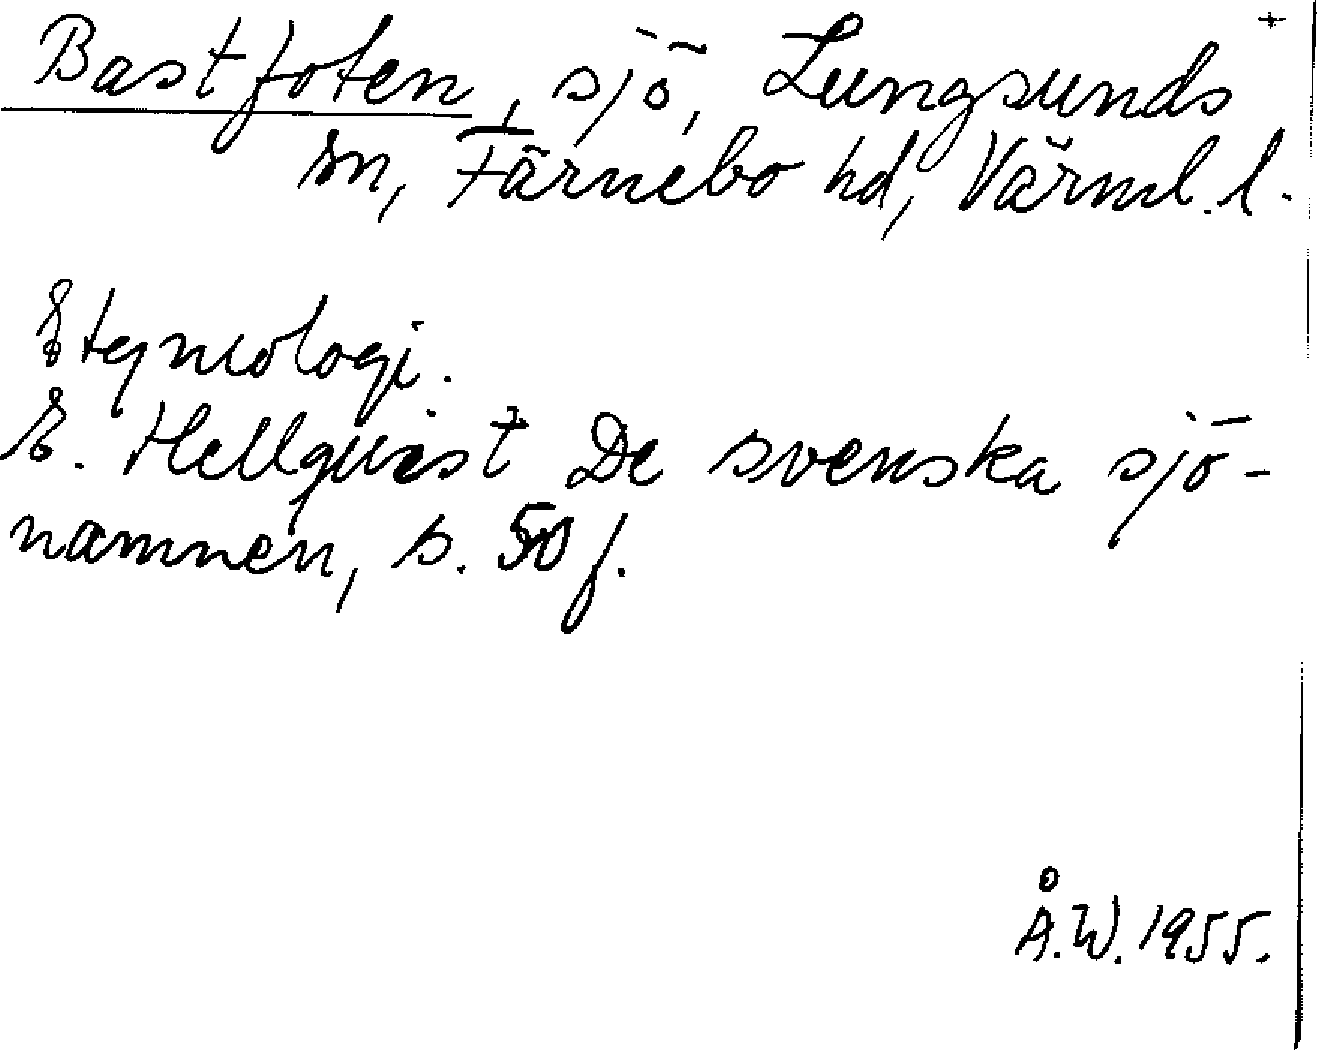 +
Bastfoten, sjö, Lungsunds
sn, Färnebo hd, Värml. l.
Etymologi.
E. Hellquist De svenska sjö-
namnen, s. 50 f.
Å.W. 1955.